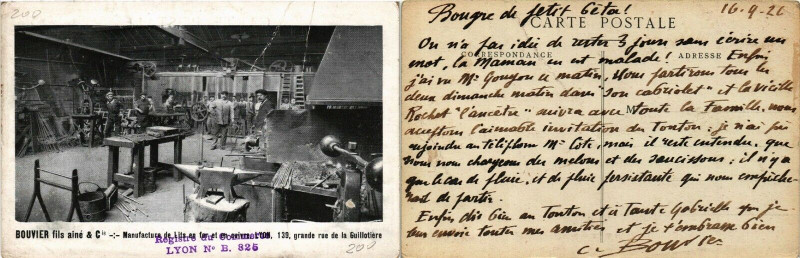 200
BOUVIER fils ainé & Cie -:- Manufacture de Lits en fer et en cuivre, LYON, 139, grande rue de la Guillotière
Registre du Commerce
LYON No B. 825
200
Bougre de petit bêta!
16-9-26
CARTE POSTALE
CORRESPONDANCE
ADRESSE
On n'a pas idée de rester 3 jours sans écrire un
mot, la Maman en est malade! Enfin
j'ai vu Mr ce matin. Nous partirons tous les
deux dimanche matin dans "son cabriolet" et la vieille
Rochet "l'ancêtre" suivra avec toute la famille. nous
acceptons l'aimable invitation du Tonton; je n'ai pu
rejoindre au téléphone Mr mais il reste entendu, que
nous nous chargeons des melons et des saucissons; il n'y a
que le cas de pluie, et de pluie persistante qui nous empêche-
rait de partir.
Enfin dis bien au Tonton et à tante Gabrielle que je
leur envoie toutes mes amitiés et je t'embrasse bien